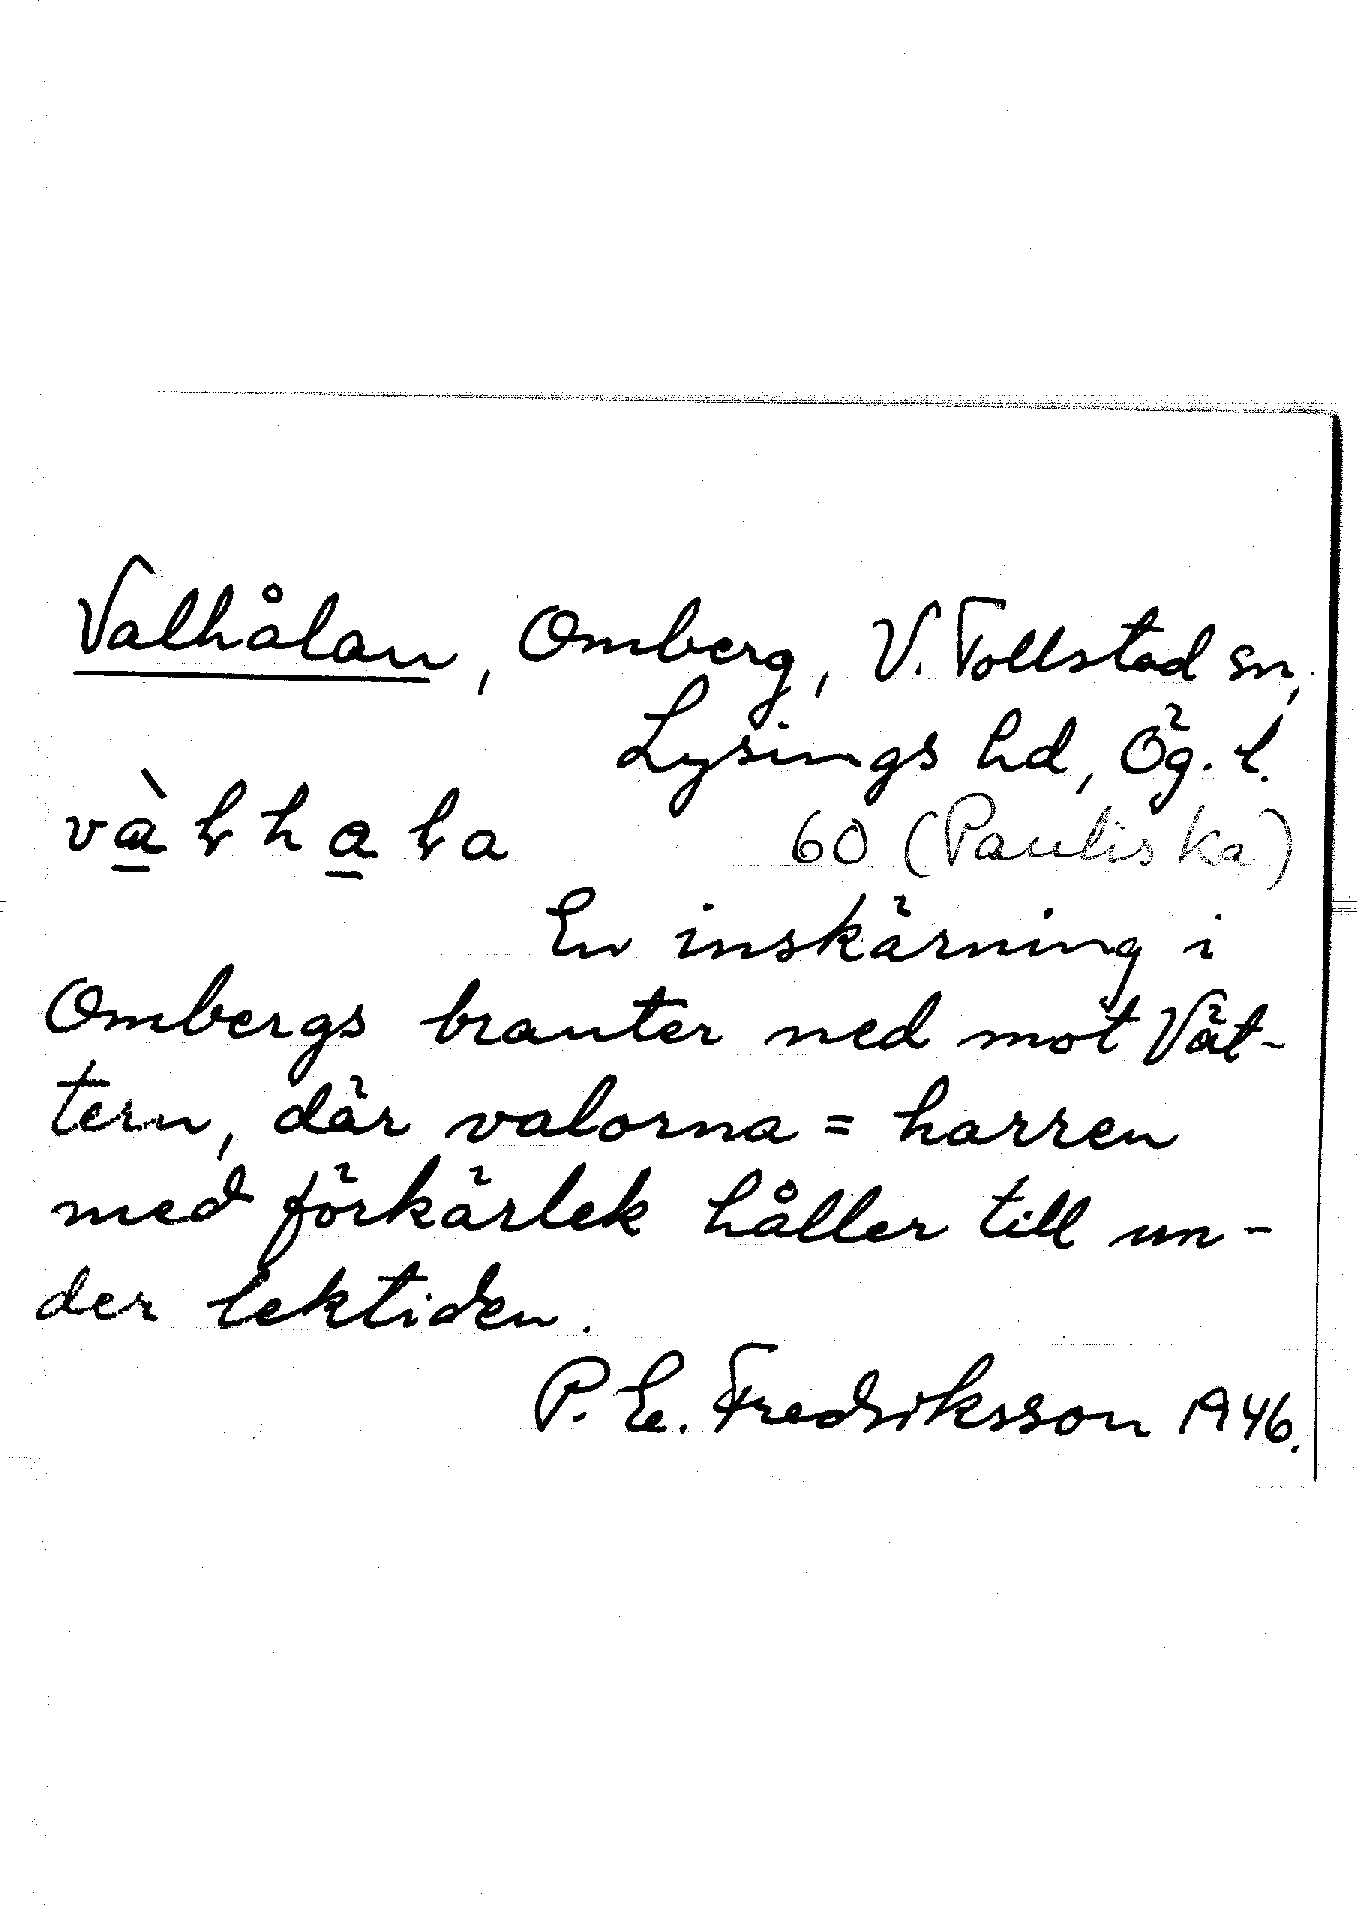 Valhålan, Omberg, V. Tollstad sn,
Lysings hd, Ög. l.
60 (Pauliska)
En inskärning i
Ombergs branter ned mot Vät-
tern, där valorna = harren
med förkärlek håller till un-
der lektiden.
P. E. Fredriksson 1946.